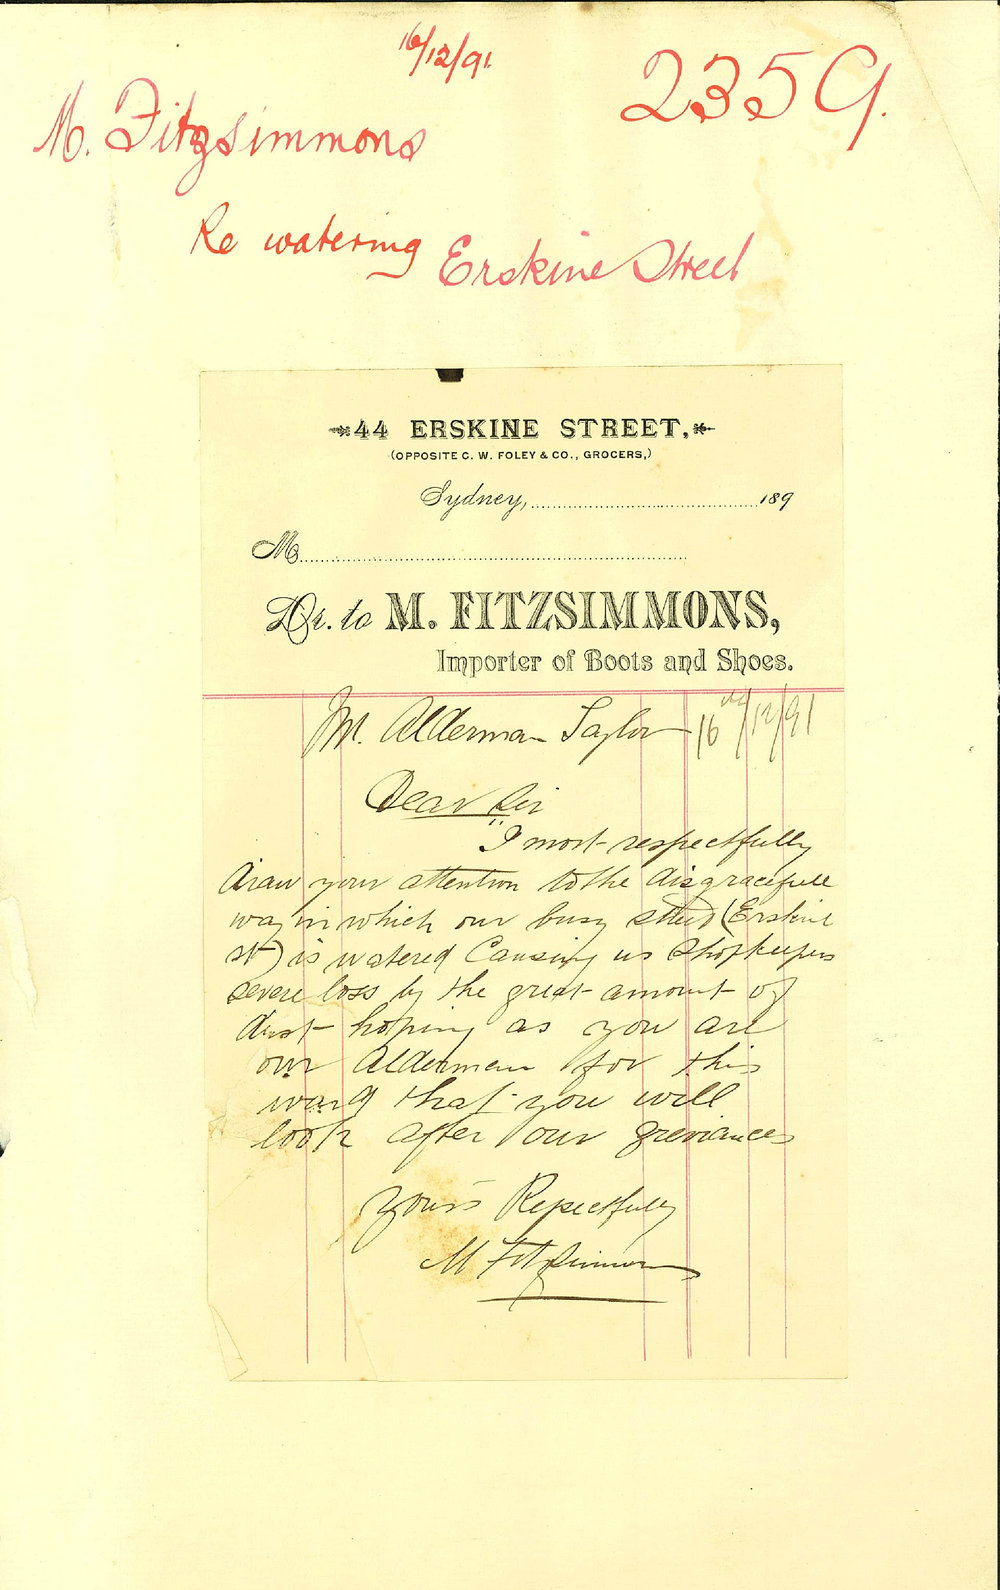 16/12/91.
2359.
M. Fitzsimmons
Re watering Erskine Street
44 ERSKINE STREET,
(OPPOSITE C. W. FOLEY & CO., GROCERS,)
Sydney, 189
M
Dr. to M. FITZSIMMONS,
Importer of Boots and Shoes.
Mr. Alderman Taylor 16/12/91
Dear Sir
"I most respectfully
draw your attention to the disgracefull
way in which our busy street (Erskine
st) is watered Causing us Shopkeepers
severe loss by the great amount of
dust hoping as you are
our Alderman for this
ward that you will
look after our greviances
Yours Repectfully
M Fitzsimmons